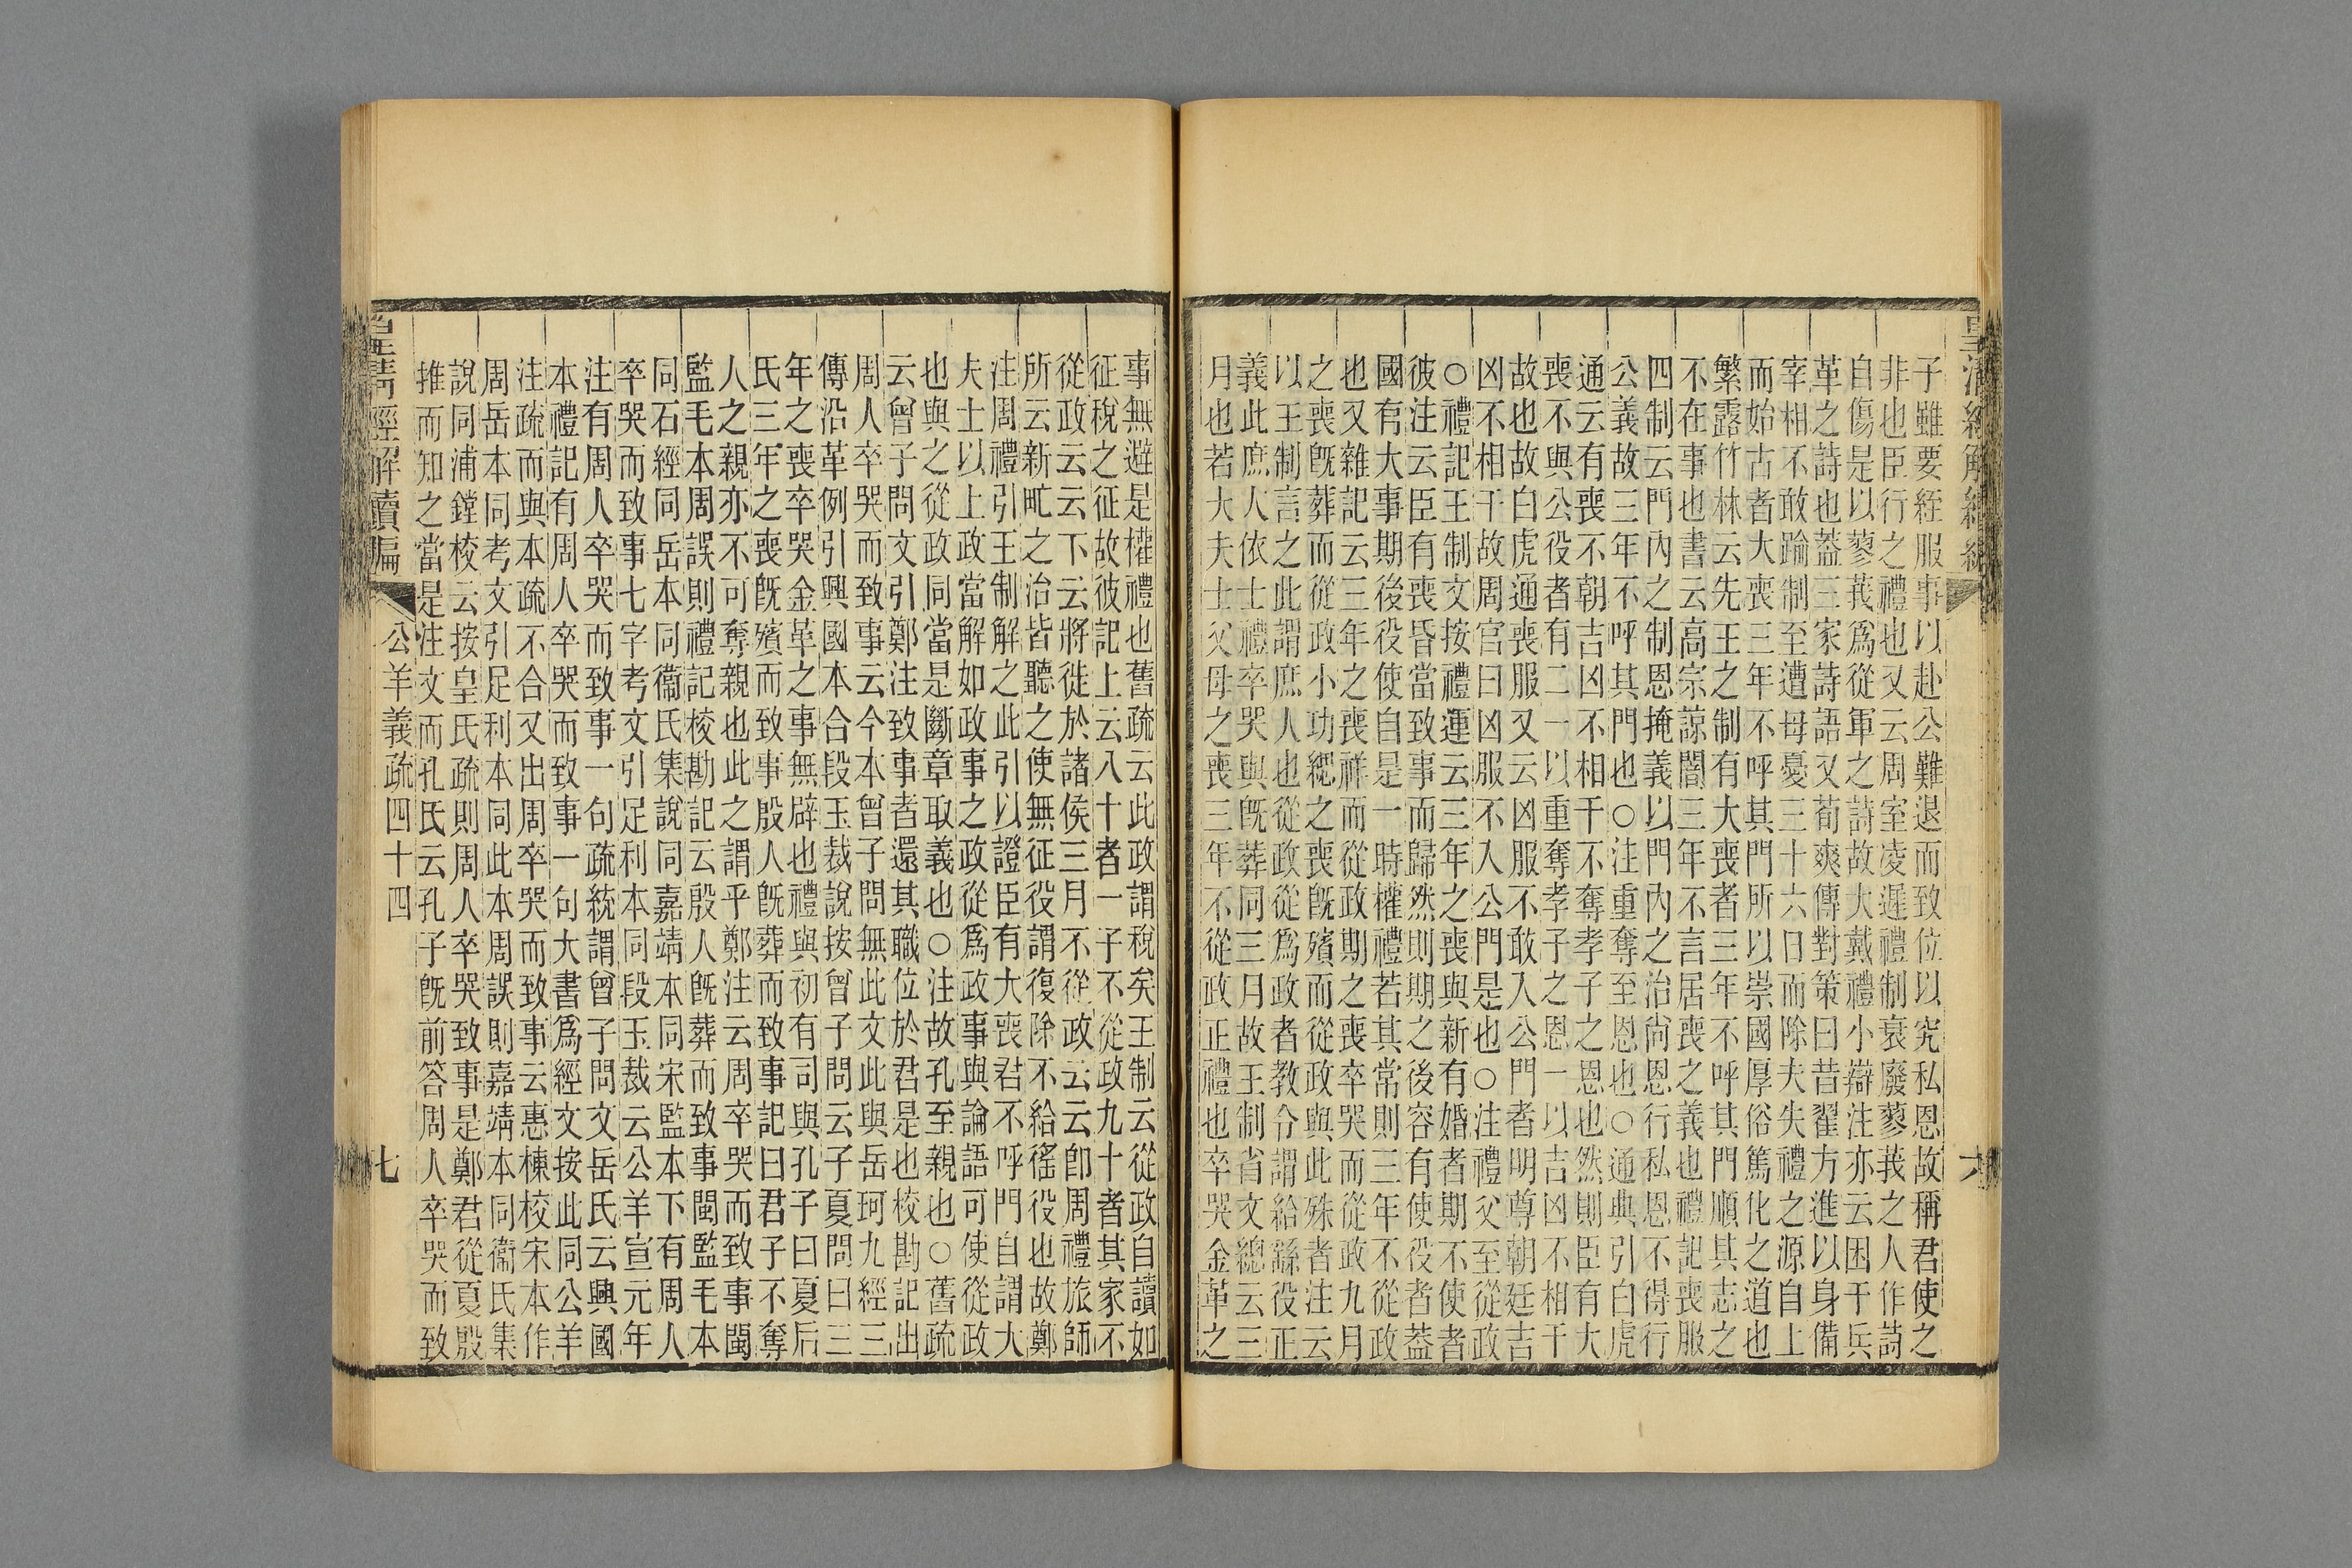 子雖要絰服事以赴公難退而致位以究私恩故稱君使之
非也臣行之禮也又云周室凌遲禮制衰廢蓼莪之人作詩
自傷是以蓼莪爲從軍之詩故大戴禮小辯注亦云困于兵
革之詩也葢三家詩語又荀爽傳對策曰昔翟方進以身備
宰相不敢踰制至遭母憂三十六日而除夫失禮之源自上
而始古者大喪三年不呼其門所以崇國厚俗篤化之道也
繁露竹林云先王之制有大喪者三年不呼其門順其志之
不在事也書云高宗諒闇三年不言居喪之義也禮記喪服
四制云門內之制恩掩義以門內之治尚恩行私恩不得行
公義故三年不呼其門也○注重奪至恩也○通典引白虎
通云有喪不朝吉凶不相干不奪孝子之恩也然則臣有大
喪不與公役者有二一以重奪孝子之恩一以吉凶不相干
故也故白虎通喪服又云凶服不敢入公門者明尊朝廷吉
凶不相干故周官曰凶服不入公門是也○注禮父至從政
○禮記王制文按禮運云三年之喪與新有婚者期不使者
彼注云臣有喪昏當致事而歸然則期之後容有使役者葢
國有大事期後役使自是一時權禮若其常則三年不從政
也又雜記云三年之喪祥而從政期之喪卒哭而從政九月
之喪旣葬而從政小功緦之喪旣殯而從政與此殊者注云
以王制言之此謂庶人也從政從爲政者教令謂給繇役正
義此庶人依士禮卒哭與旣葬同三月故王制省文總云三
月也若大夫士父母之喪三年不從政正禮也卒哭金革之
事無避是權禮也舊疏云此政謂稅矣王制云從政自讀如
征稅之征故彼記上云八十者一子不從政九十者其家不
從政云云下云將徙於諸侯三月不從政云云卽周禮旅師
所云新甿之治皆聽之使無征役謂復除不給徭役也故鄭
注周禮引王制解之此引以證臣有大喪君不呼門自謂大
夫士以上政當解如政事之政從爲政事與論語可使從政
也與之從政同當是斷章取義也○注故孔至親也○舊疏
云曾子問文引鄭注致事者還其職位於君是也校勘記出
周人卒哭而致事云今本曾子問無此文此與岳珂九經三
傳沿革例引興國本合段玉裁說按曾子問云子夏問曰三
年之喪卒哭金革之事無辟也禮與初有司與孔子曰夏后
氏三年之喪旣殯而致事殷人旣葬而致事記曰君子不奪
人之親亦不可奪親也此之謂乎鄭注云周卒哭而致事閩
監毛本周誤則禮記校勘記云殷人旣葬而致事閩監毛本
同石經同岳本同衞氏集說同嘉靖本同宋監本下有周人
卒哭而致事七字考文引足利本同段玉裁云公羊宣元年
注有周人卒哭而致事一句疏統謂曾子問文岳氏云興國
本禮記有周人卒哭而致事一句大書爲經文按此同公羊
注疏而與本疏不合又出周卒哭而致事云惠棟校宋本作
周岳本同考文引足利本同此本周誤則嘉靖本同衞氏集
說同浦鏜校云按皇氏疏則周人卒哭致事是鄭君從夏殷
推而知之當是注文而孔氏云孔子旣前答周人卒哭而致
皇淸經解續編 公羊義疏四十四 七